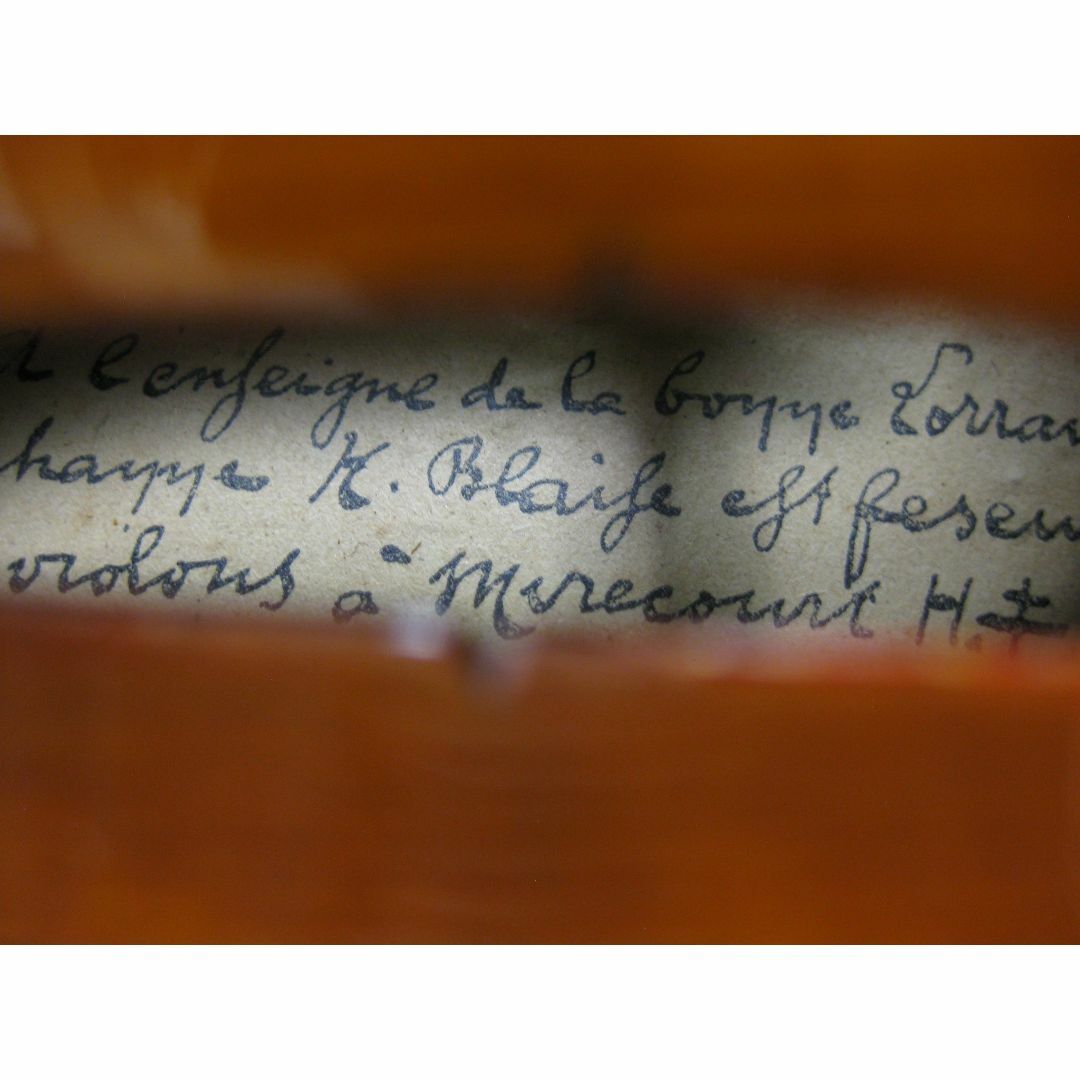 A l'enseigne de la bonne Lorrain
channe K. Blaise est feseur
violons à Mirecourt H.